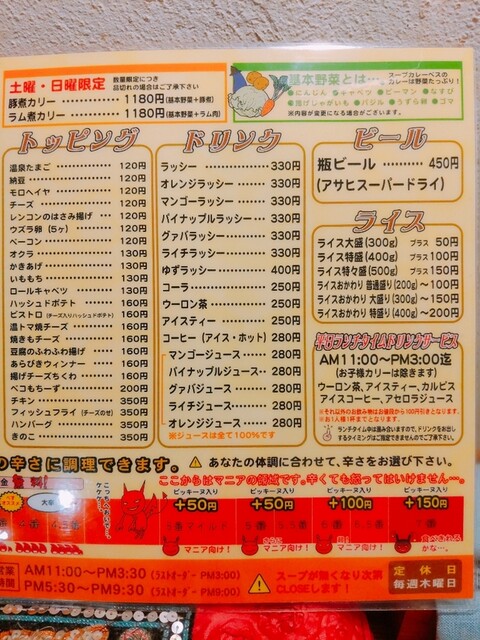 土曜・日曜限定
数量限定につき
品切れの場合はご了承下さい
豚煮カリー ………… 1180円(基本野菜+豚煮)
ラム煮カリー ……… 1180円(基本野菜+ラム肉)
基本野菜とは…。
スープカレーベースの
カレーは野菜たっぷり!
●にんじん ●キャベツ ●ピーマン ●なすび
●揚げじゃがいも ●バジル ●うずら卵 ●ゴマ
※内容が変更になる場合がございます。
トッピング
温泉たまご ………… 120円
納豆 ………… 120円
モロヘイヤ ………… 120円
チーズ ………… 120円
レンコンのはさみ揚げ … 120円
ウズラ卵(5ヶ) ……… 120円
ベーコン ………… 120円
オクラ ………… 130円
かきあげ ………… 130円
いももち ………… 130円
ロールキャベツ ……… 130円
ハッシュドポテト …… 160円
ピストロ(チーズ入りハッシュドポテト) 160円
温トマ焼チーズ ……… 160円
焼きもチーズ ……… 160円
豆腐のふわふわ揚げ … 160円
あらびきウィンナー … 160円
揚げチーズちくわ …… 160円
ベコもちーず ……… 200円
チキン ………… 350円
フィッシュフライ(チーズのせ) 350円
ハンバーグ ………… 350円
きのこ ………… 350円
ドリンク
ラッシー ………… 330円
オレンジラッシー …… 330円
マンゴーラッシー …… 330円
パイナップルラッシー … 330円
グァバラッシー ……… 330円
ライチラッシー ……… 330円
ゆずラッシー ……… 400円
コーラ ………… 250円
ウーロン茶 ………… 250円
アイスティー ……… 250円
コーヒー(アイス・ホット) 280円
マンゴージュース …… 280円
パイナップルジュース … 280円
グァバジュース ……… 280円
ライチジュース ……… 280円
オレンジジュース …… 280円
※ジュースは全て100%です
ビール
瓶ビール ……… 450円
(アサヒスーパードライ)
ライス
ライス大盛(300g) プラス 50円
ライス特盛(400g) プラス 100円
ライス特々盛(500g) プラス 150円
ライスおかわり 普通盛り(200g)〜100円
ライスおかわり 大盛り(300g)〜150円
ライスおかわり 特盛り(400g)〜200円
平日ランチタイムドリンクサービス
AM11:00〜PM3:00迄
(お子様カリーは除きます)
ウーロン茶、アイスティー、カルピス
アイスコーヒー、アセロラジュース
※それ以外のお飲み物はお値段から100円引きとなります。
※お1人様1杯までとなります。
ランチタイム中は混み合いますので、ドリンクをお出し
するタイミングはご指定できませんのでご了承下さい。
の辛さに調理できます。
あなたの体調に合わせて、辛さをお選び下さい。
ここからはマニアの領域です。辛くても怒ってはいけません…。
ピッキーヌ入り ピッキーヌ入り ピッキーヌ入り ピッキーヌ入り
+50円 +50円 +100円 +150円
マニア向け! さらにマニア向け! 超!マニア向け! 食べきれるかな…。
営業時間
AM11:00〜PM3:30(ラストオーダー PM3:00)
PM5:30〜PM9:30(ラストオーダー PM9:00)
スープが無くなり次第
CLOSEします!
定休日
毎週木曜日